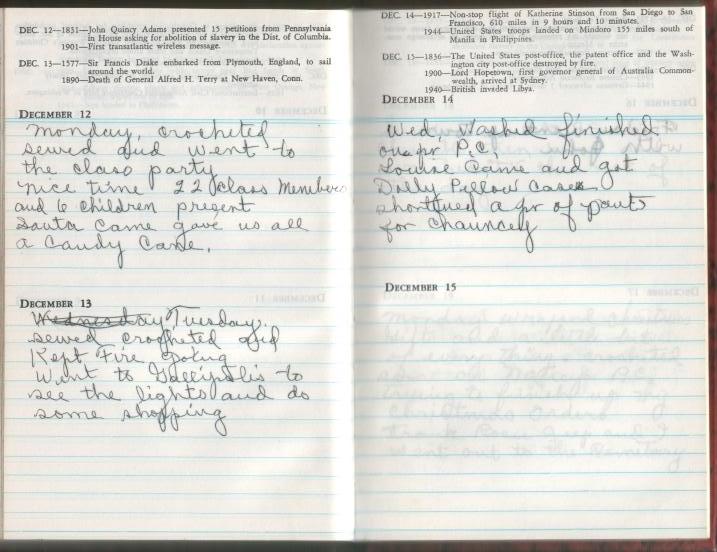 DEC. 12—1831—John Quincy Adams presented 15 petitions from Pennsylvania
in House asking for abolition of slavery in the Dist. of Columbia.
1901—First transatlantic wireless message.
DEC. 13—1577—Sir Francis Drake embarked from Plymouth, England, to sail
around the world.
1890—Death of General Alfred H. Terry at New Haven, Conn.
DECEMBER 12
Monday, crocheted
sewed and went to
the class party
nice time 22 class Members
and 6 children present
Santa came gave us all
a Candy Cane.
DECEMBER 13
Wednesday Tuesday,
sewed crocheted
Kept Fire going
Went to Gallipolis to
see the lights and do
some shopping
DEC. 14—1917—Non-stop flight of Katherine Stinson from San Diego to San
Francisco, 610 miles in 9 hours and 10 minutes.
1944—United States troops landed on Mindoro 155 miles south of
Manila in Philippines.
DEC. 15—1836—The United States post-office, the patent office and the Wash-
ington city post-office destroyed by fire.
1900—Lord Hopetown, first governor general of Australia Common-
wealth, arrived at Sydney.
1940—British invaded Libya.
DECEMBER 14
Wed, Washed finished
one pr P.C.
Louise Came and got
Dolly Pillow Cases
shortned a pr of pants
for Chauncey
DECEMBER 15